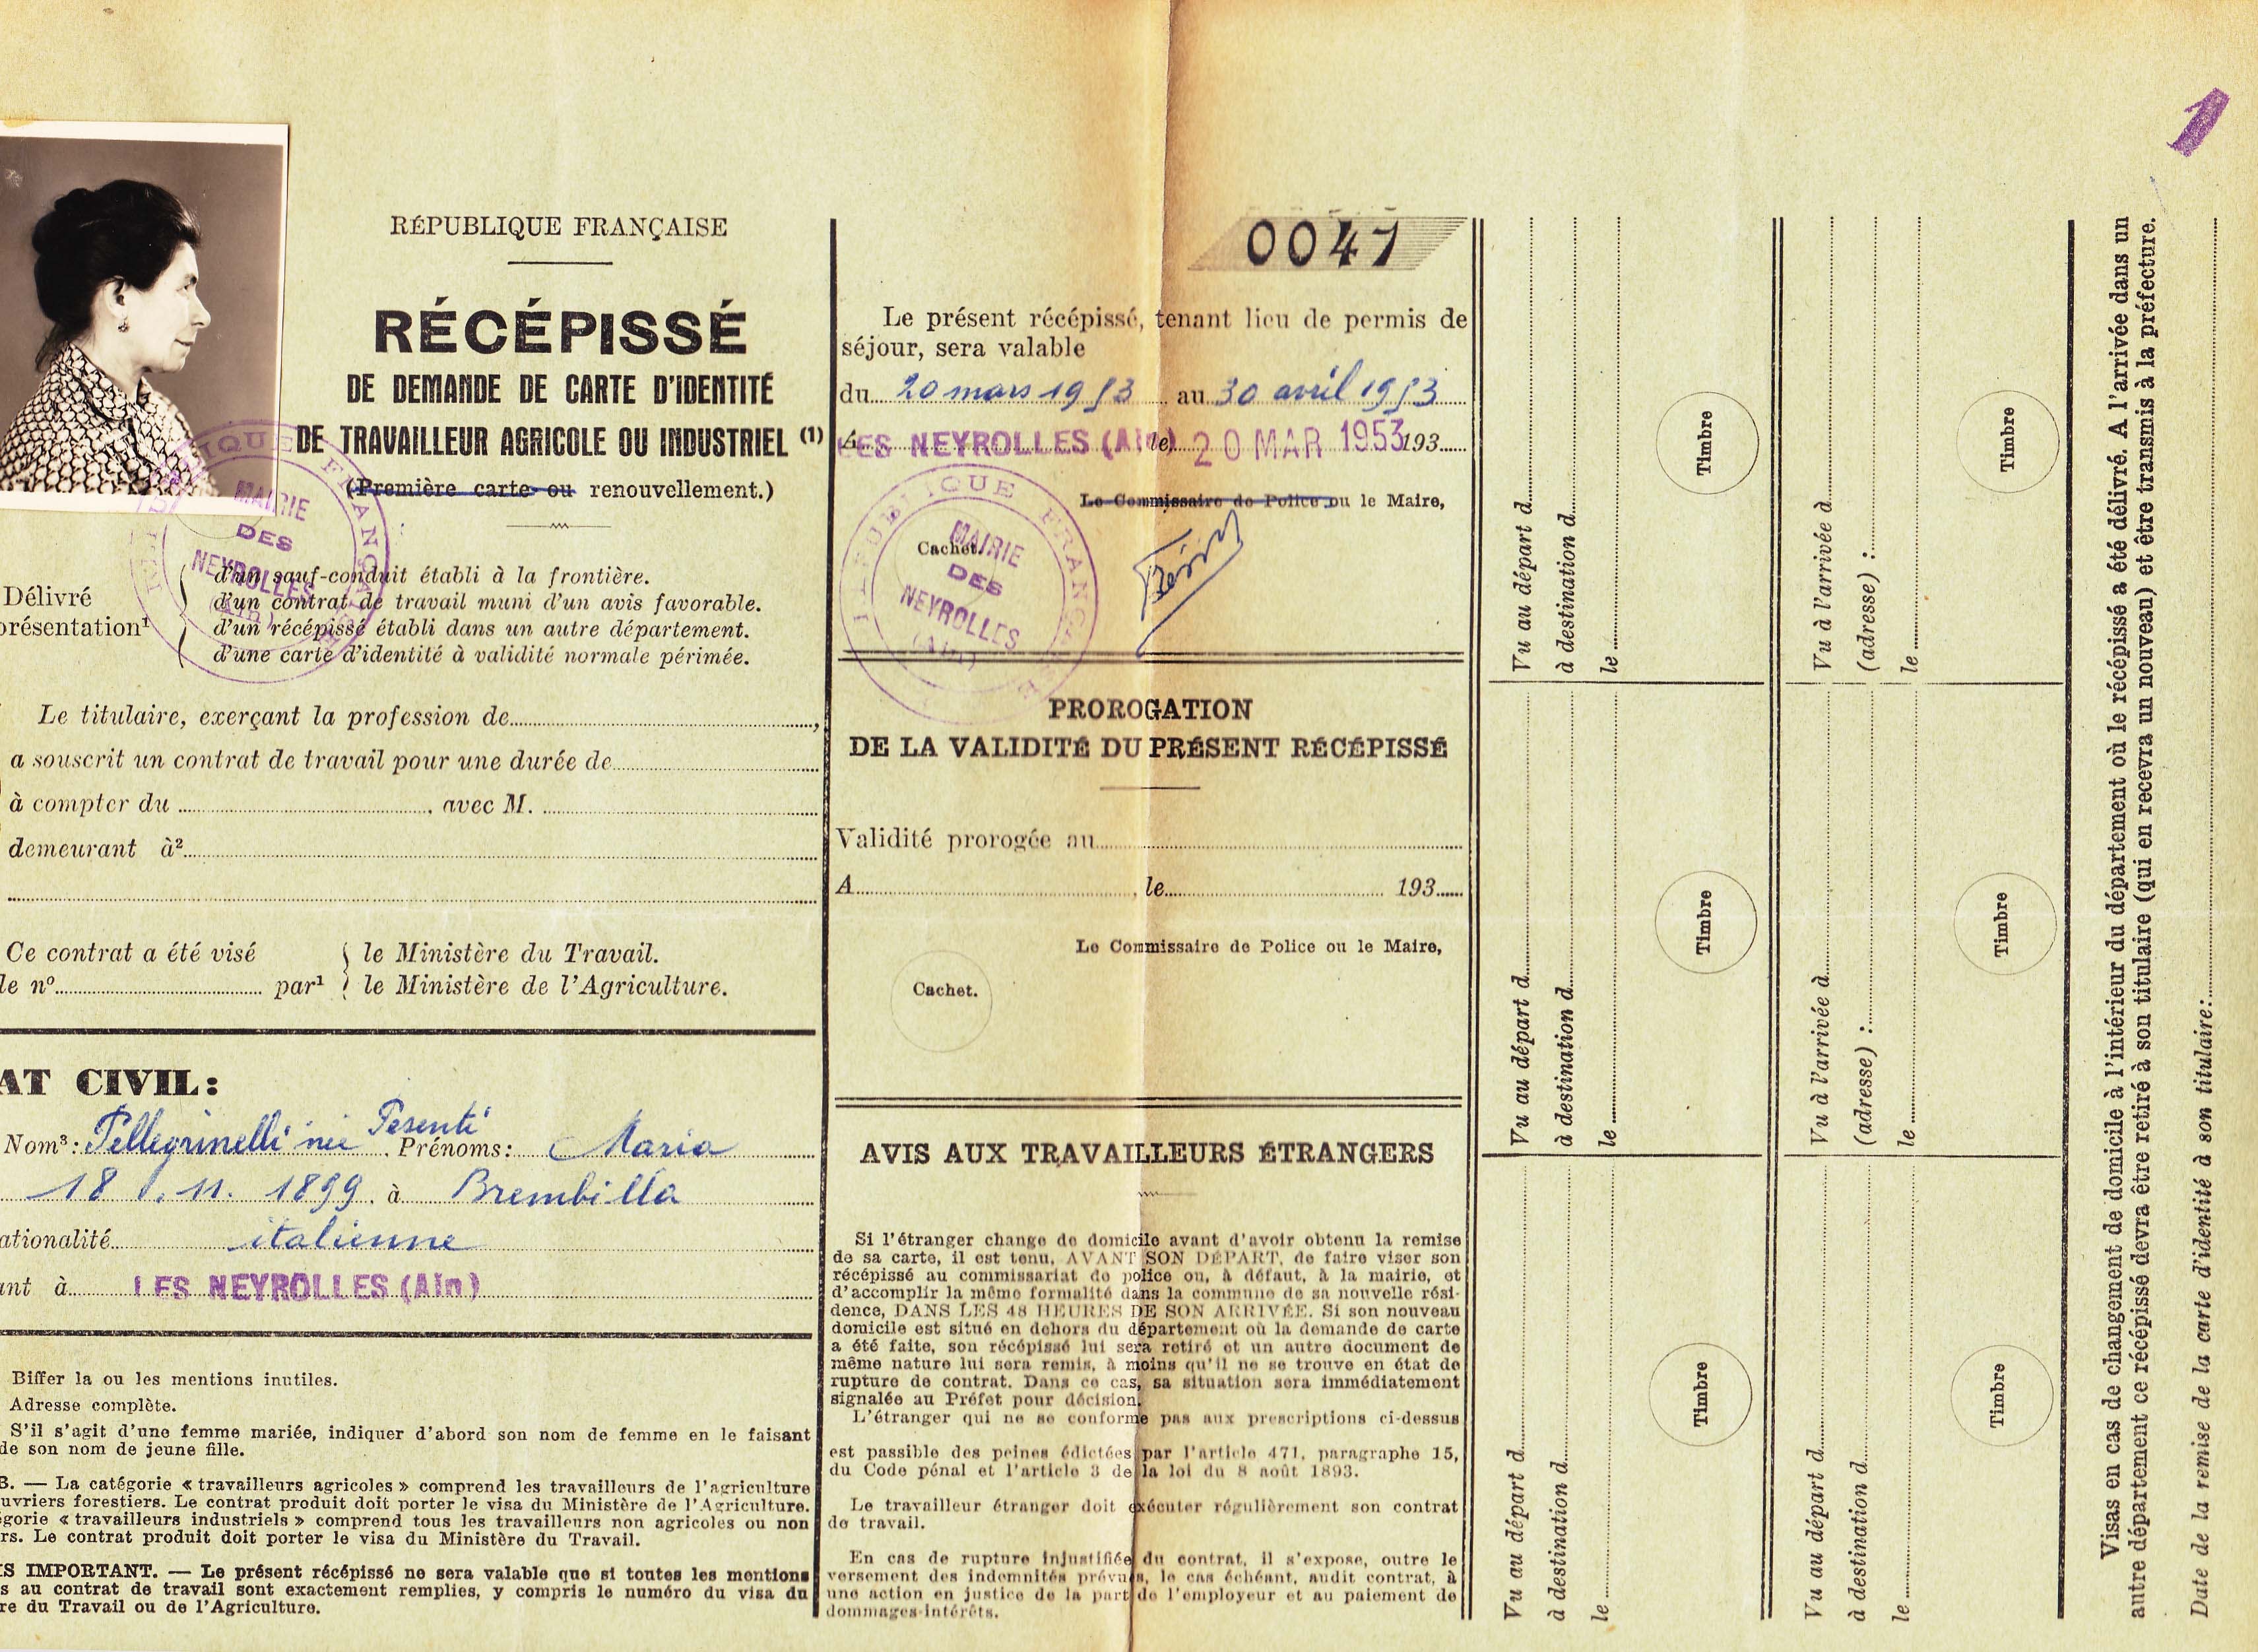 1
RÉPUBLIQUE FRANÇAISE
RÉCÉPISSÉ
DE DEMANDE DE CARTE D'IDENTITÉ
DE TRAVAILLEUR AGRICOLE OU INDUSTRIEL (1)
(Première carte ou renouvellement.)
RÉPUBLIQUE FRANÇAISE
MAIRIE
DES
NEYROLLES
(Ain)
Délivré
présentation¹
d'un sauf-conduit établi à la frontière.
d'un contrat de travail muni d'un avis favorable.
d'un récépissé établi dans un autre département.
d'une carte d'identité à validité normale périmée.
Le titulaire, exerçant la profession de
a souscrit un contrat de travail pour une durée de
à compter du avec M.
demeurant à²
Ce contrat a été visé
le nº par¹
le Ministère du Travail.
le Ministère de l'Agriculture.
AT CIVIL:
Nom³: Pellegrinelli née Pesenti Prénoms: Maria
18.11.1899 à Brembilla
ationalité italienne
ant à LES NEYROLLES (Ain)
Biffer la ou les mentions inutiles.
Adresse complète.
S'il s'agit d'une femme mariée, indiquer d'abord son nom de femme en le faisant
de son nom de jeune fille.
B. — La catégorie « travailleurs agricoles » comprend les travailleurs de l'agriculture
uvriers forestiers. Le contrat produit doit porter le visa du Ministère de l'Agriculture.
gorie « travailleurs industriels » comprend tous les travailleurs non agricoles ou non
rs. Le contrat produit doit porter le visa du Ministère du Travail.
S IMPORTANT. — Le présent récépissé ne sera valable que si toutes les mentions
s au contrat de travail sont exactement remplies, y compris le numéro du visa du
re du Travail ou de l'Agriculture.
0041
Le présent récépissé, tenant lieu de permis de
séjour, sera valable
du 20 mars 1953 au 30 avril 1953
A LES NEYROLLES (Ain) le 20 MAR 1953 193
Le Commissaire de Police ou le Maire,
Cachet.
RÉPUBLIQUE FRANÇAISE
MAIRIE
DES
NEYROLLES
(Ain)
PROROGATION
DE LA VALIDITÉ DU PRÉSENT RÉCÉPISSÉ
Validité prorogée au
A , le 193
Le Commissaire de Police ou le Maire,
Cachet.
AVIS AUX TRAVAILLEURS ÉTRANGERS
Si l'étranger change de domicile avant d'avoir obtenu la remise
de sa carte, il est tenu, AVANT SON DÉPART, de faire viser son
récépissé au commissariat de police ou, à défaut, à la mairie, et
d'accomplir la même formalité dans la commune de sa nouvelle rési-
dence, DANS LES 48 HEURES DE SON ARRIVÉE. Si son nouveau
domicile est situé en dehors du département où la demande de carte
a été faite, son récépissé lui sera retiré et un autre document de
même nature lui sera remis, à moins qu'il ne se trouve en état de
rupture de contrat. Dans ce cas, sa situation sera immédiatement
signalée au Préfet pour décision.
L'étranger qui ne se conforme pas aux prescriptions ci-dessus
est passible des peines édictées par l'article 471, paragraphe 15,
du Code pénal et l'article 3 de la loi du 8 août 1893.
Le travailleur étranger doit exécuter régulièrement son contrat
de travail.
En cas de rupture injustifiée du contrat, il s'expose, outre le
versement des indemnités prévues, le cas échéant, audit contrat, à
une action en justice de la part de l'employeur et au paiement de
dommages-intérêts.
Vu au départ d
à destination d
le
Timbre
Vu au départ d
à destination d
le
Timbre
Vu au départ d
à destination d
le
Timbre
Vu à l'arrivée à
(adresse) :
le
Timbre
Vu à l'arrivée à
(adresse) :
le
Timbre
Vu au départ d
à destination d
le
Timbre
Visas en cas de changement de domicile à l'intérieur du département où le récépissé a été délivré. A l'arrivée dans un
autre département ce récépissé devra être retiré à son titulaire (qui en recevra un nouveau) et être transmis à la préfecture.
Date de la remise de la carte d'identité à son titulaire: